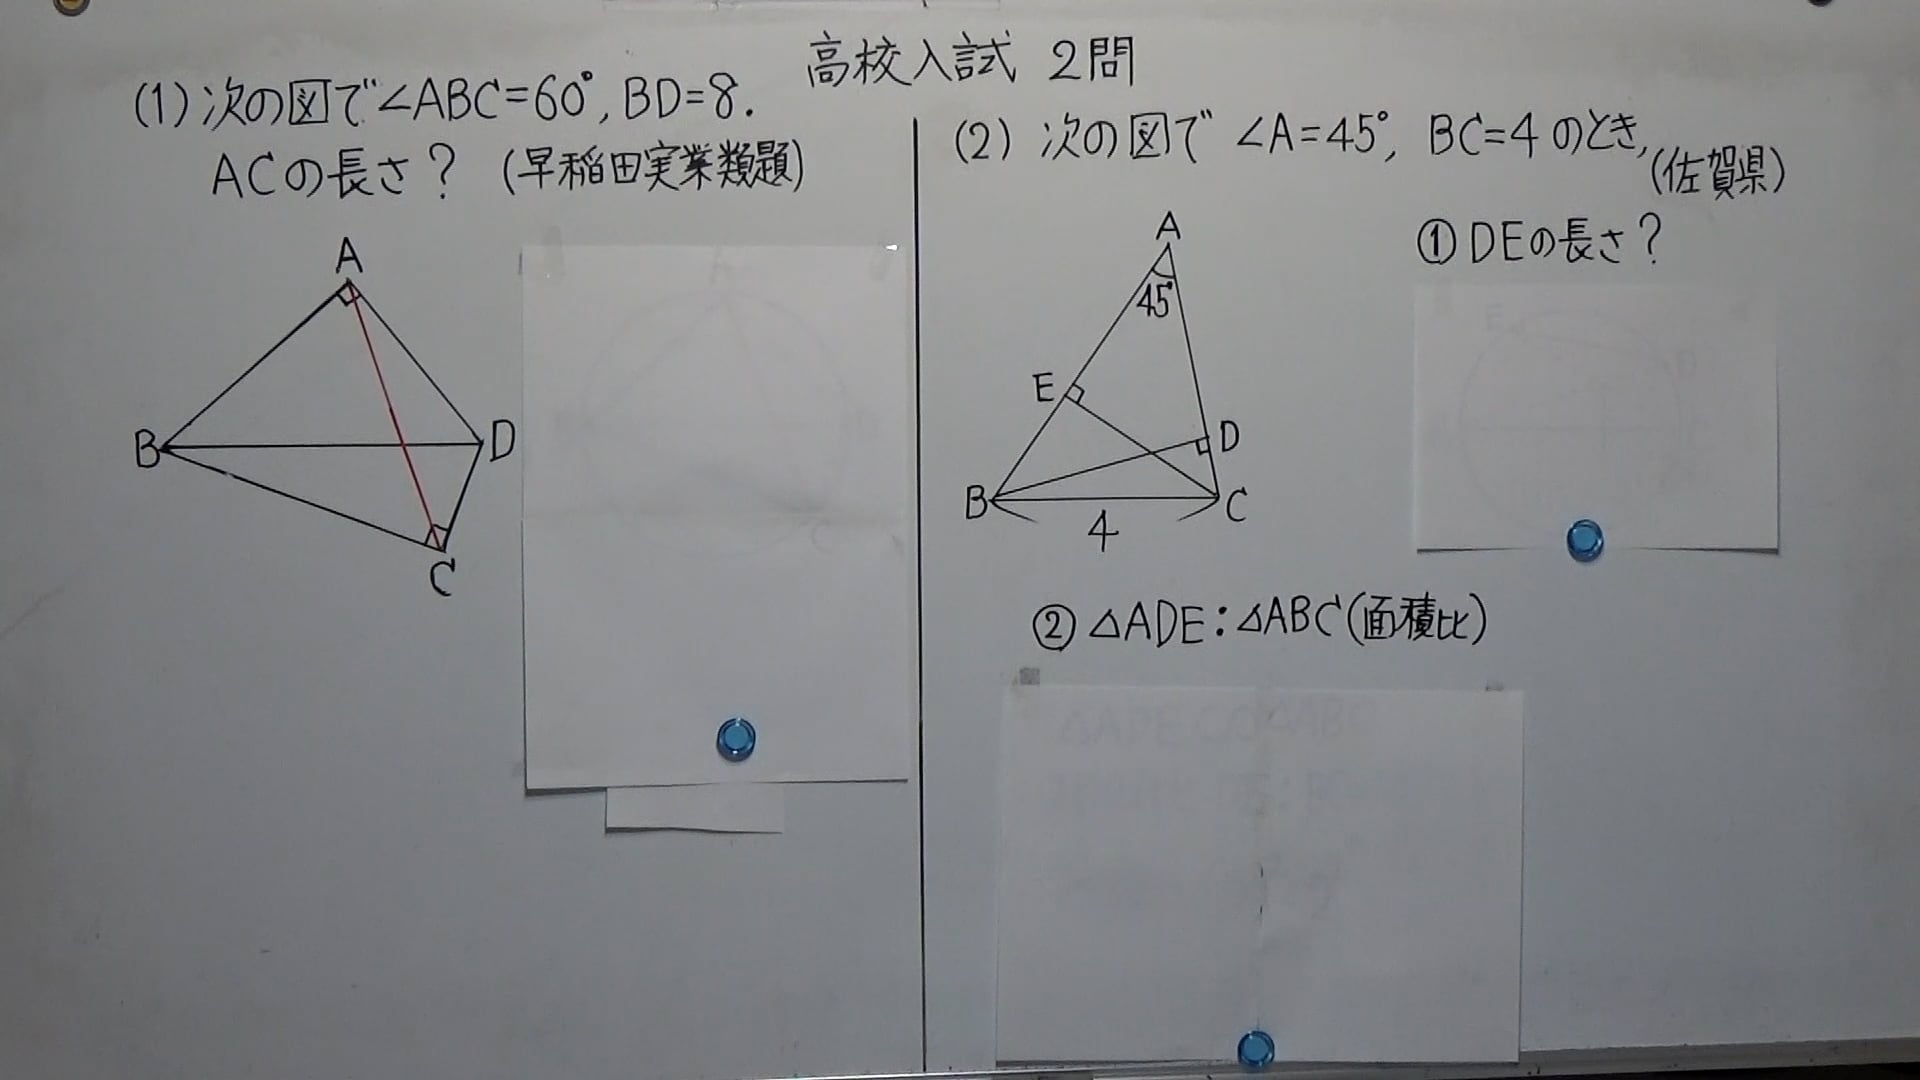 高校入試 2問
(1) 次の図で∠ABC=60°, BD=8.
ACの長さ? (早稲田実業類題)
A
B
D
C
(2) 次の図で ∠A=45°, BC=4 のとき,
(佐賀県)
① DEの長さ?
A
45°
E
D
B
C
4
② △ADE:△ABC(面積比)